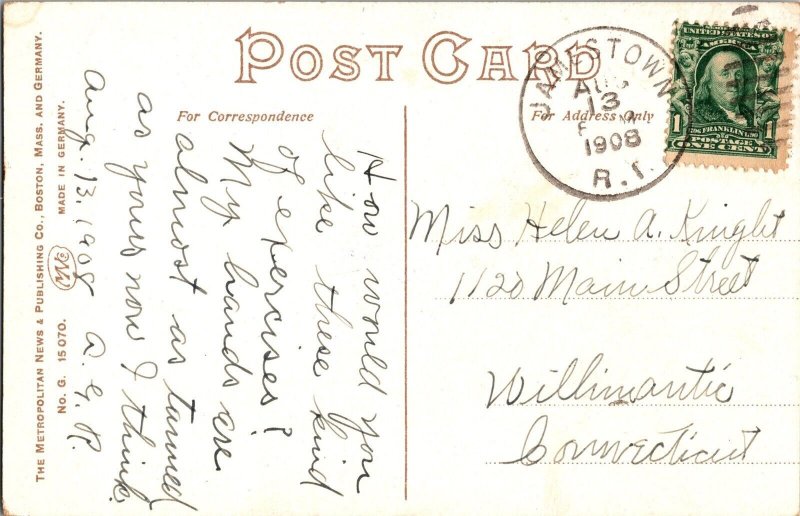 POST CARD
For Correspondence
For Address Only
JAMESTOWN
AUG
13
1908
R.I.
UNITED STATES OF
AMERICA
1 FRANKLIN 1
POSTAGE
ONE CENT
How would you
like these kind
of exercises?
My hands are
almost as tanned
as yours now I think.
Aug. 13, 1908 A.G.P.
Miss Helen A. Knight
1120 Main Street
Willimantic
Connecticut
THE METROPOLITAN NEWS & PUBLISHING CO., BOSTON, MASS. AND GERMANY.
No. G. 15070. MADE IN GERMANY.